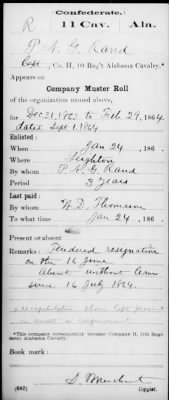 Confederate.
R 11 Cav. Ala.
P. N. G. Rand
Capt, Co. H, 10 Reg't Alabama Cavalry.*
Appears on
Company Muster Roll
of the organization named above,
for Dec 31, 1863 to Feb 29, 1864.
dated Sept 1, 1864
Enlisted:
When Jan 24, 186 .
Where Leighton
By whom P. N. G. Rand
Period 3 years
Last paid:
By whom W. D. Thomson
To what time Jan 24, 186 .
Present or absent
Remarks: Tendered resignation
on the 16 June
Absent without leave
since 16 July 1864.
Recapitulation shows Capt present
in arrest or confinement
*This company subsequently became Company H, 11th Regiment Alabama Cavalry.
Book mark:
(642) Copyist.